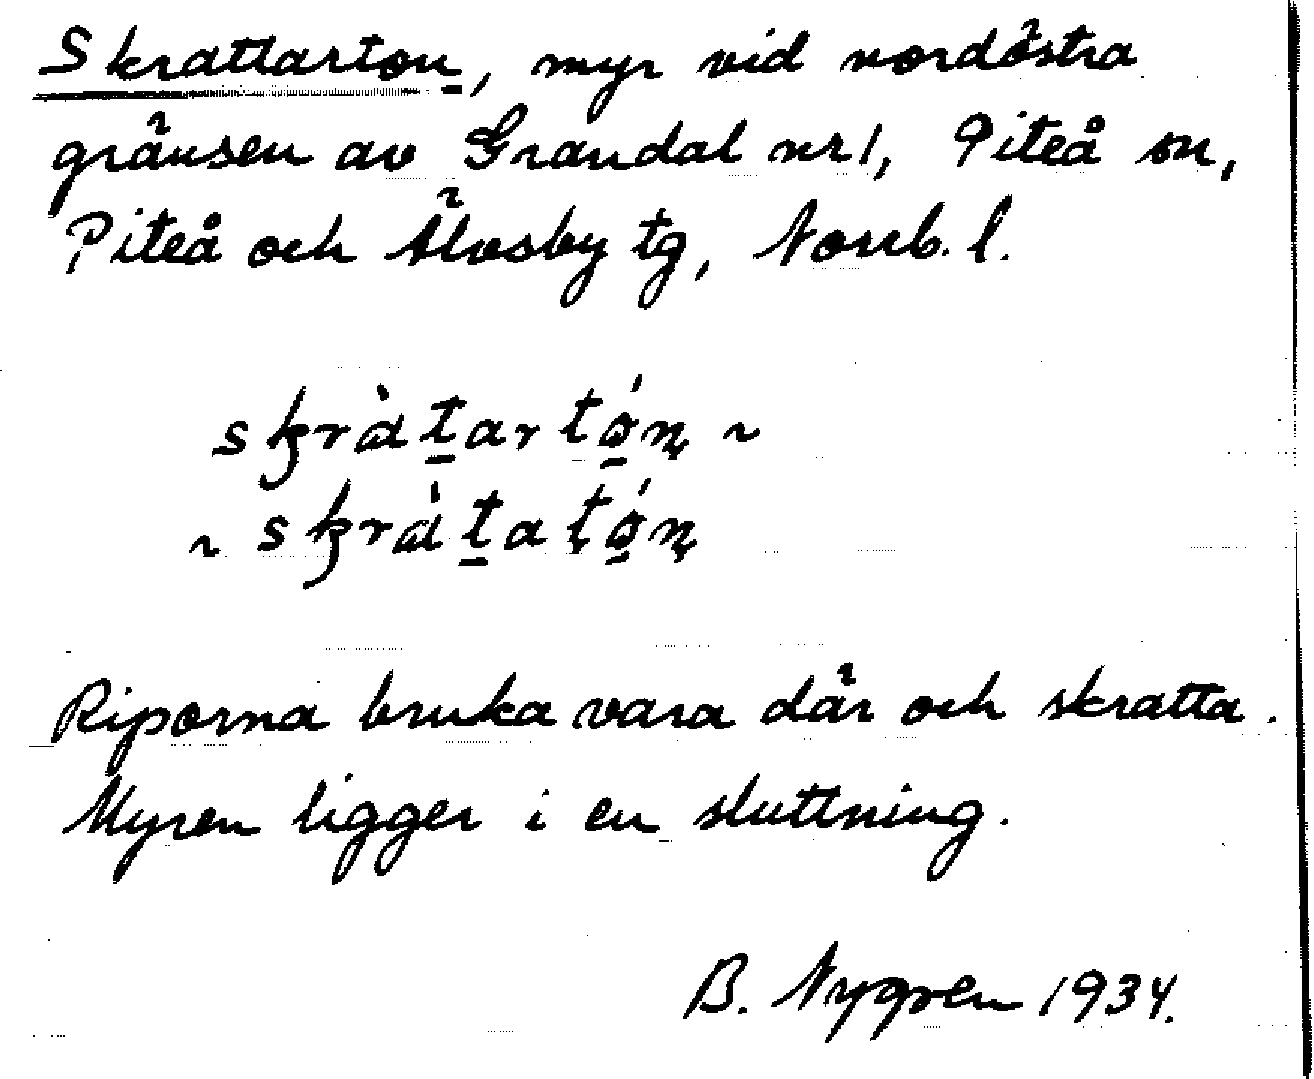 Skrattarton, myr vid nordöstra
gränsen av Grandal nr 1, Piteå sn,
Piteå och Älvsby tg, Norrb. l.
skràt̠artǿ̠n ~
~ skràt̠atǿ̠n
Riporna bruka vara där och skratta.
Myren ligger i en sluttning.
B. Nygren 1934.